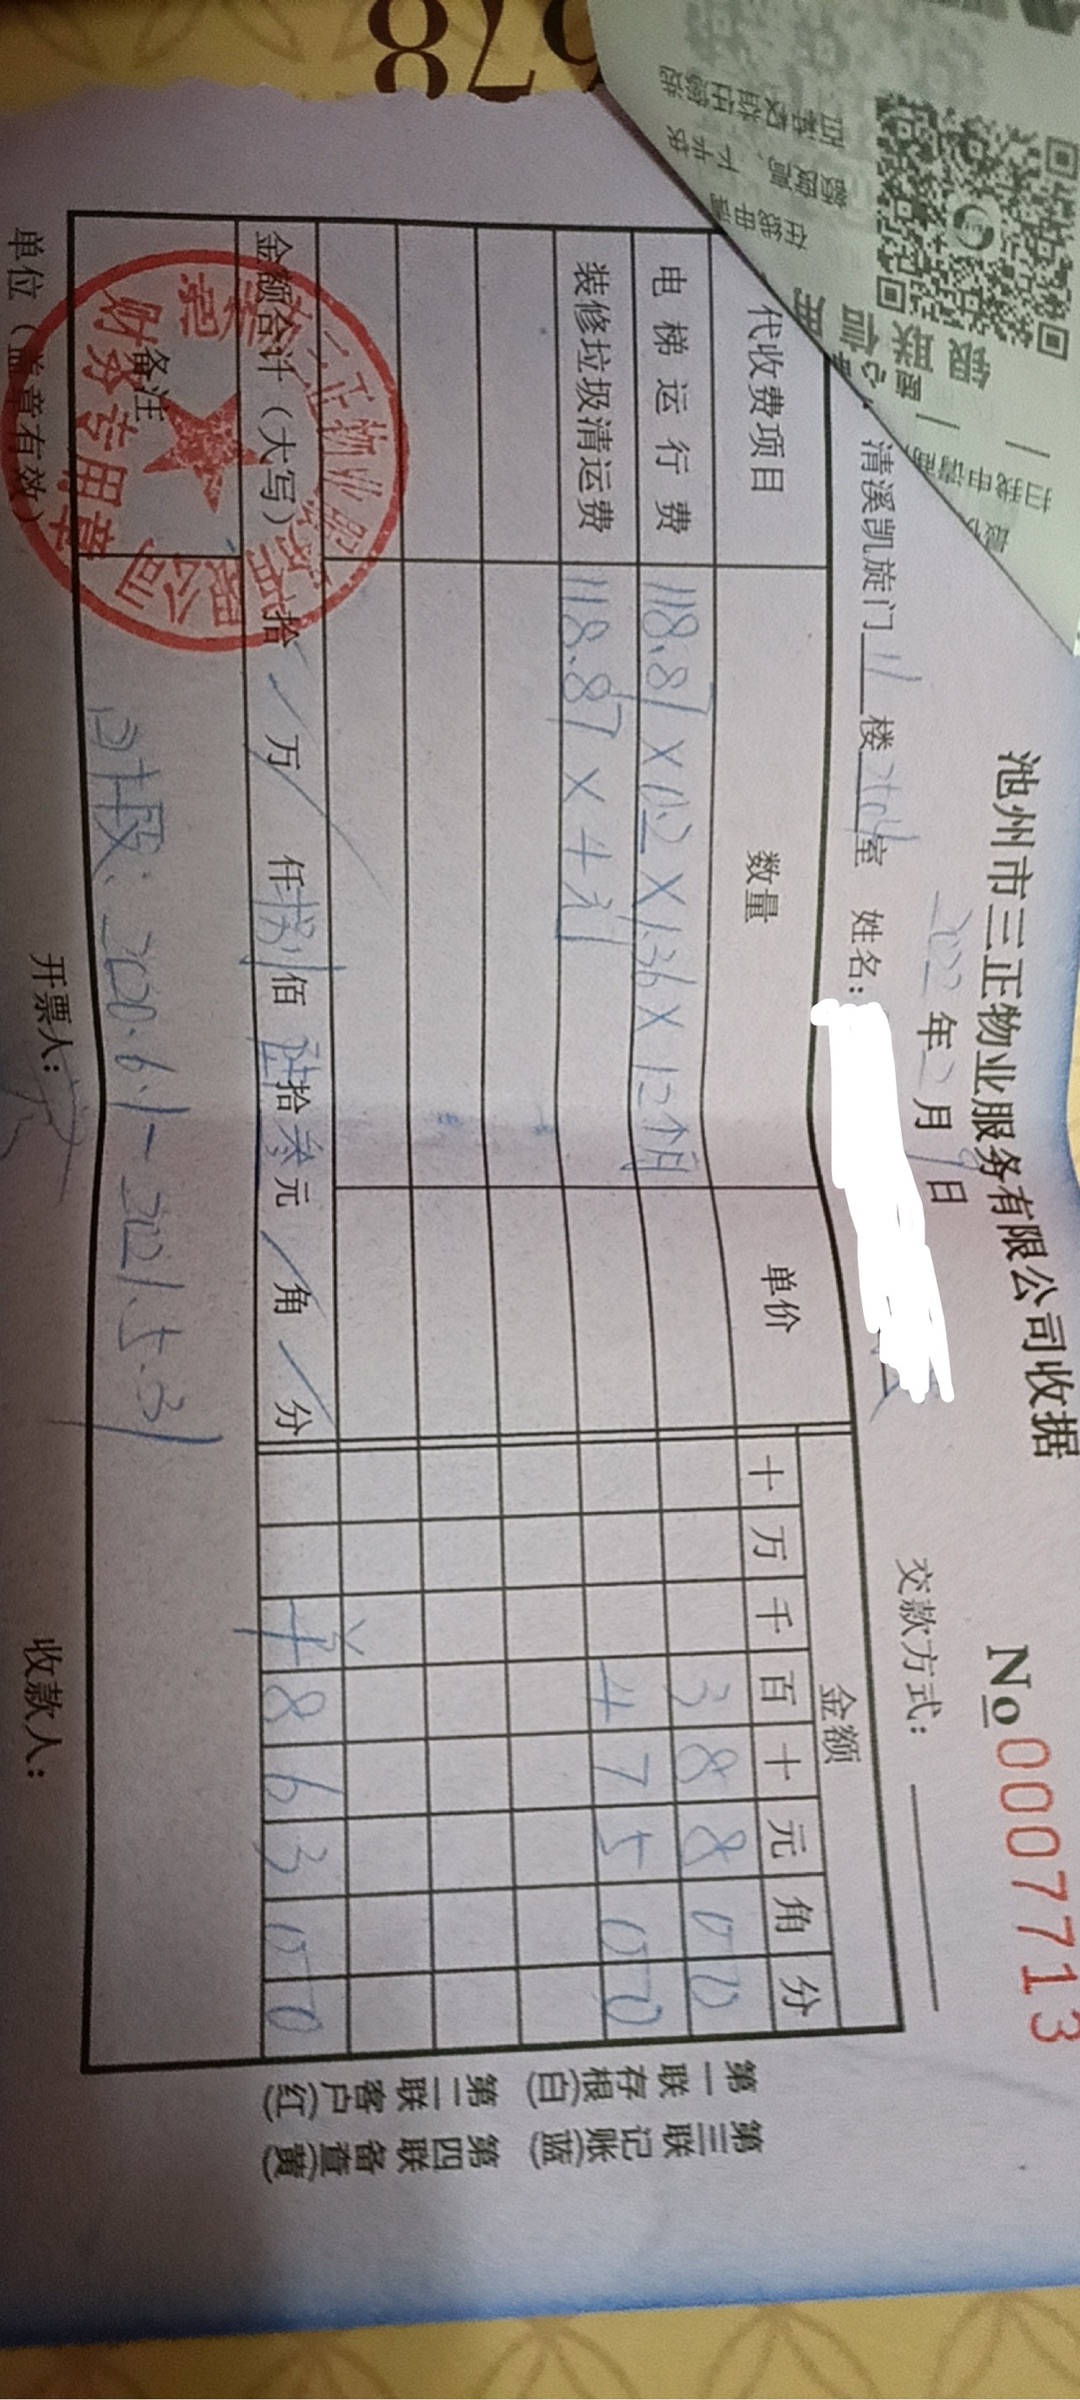 池州市三正物业服务有限公司收据
No 0007713
2022年2月9日
交款方式：
清溪凯旋门11楼2604室 姓名：
代收费项目 数量 单价 金额
十 万 千 百 十 元 角 分
电梯运行费 118.87×0.2×1.36×12个月 3 8 8 0 0
装修垃圾清运费 118.87×4元 4 7 5 0 0
金额合计（大写） 拾 万 仟 捌佰 陆拾叁元 角 分 ¥ 8 6 3 0 0
备注 时段：2020.6.1-2021.5.31
单位（盖章有效） 开票人： 收款人：
第一联存根(白) 第二联客户(红)
第三联记账(蓝) 第四联备查(黄)
三正物业服务有限公司
财务专用章
银联
在线申请
扫我申请商
678